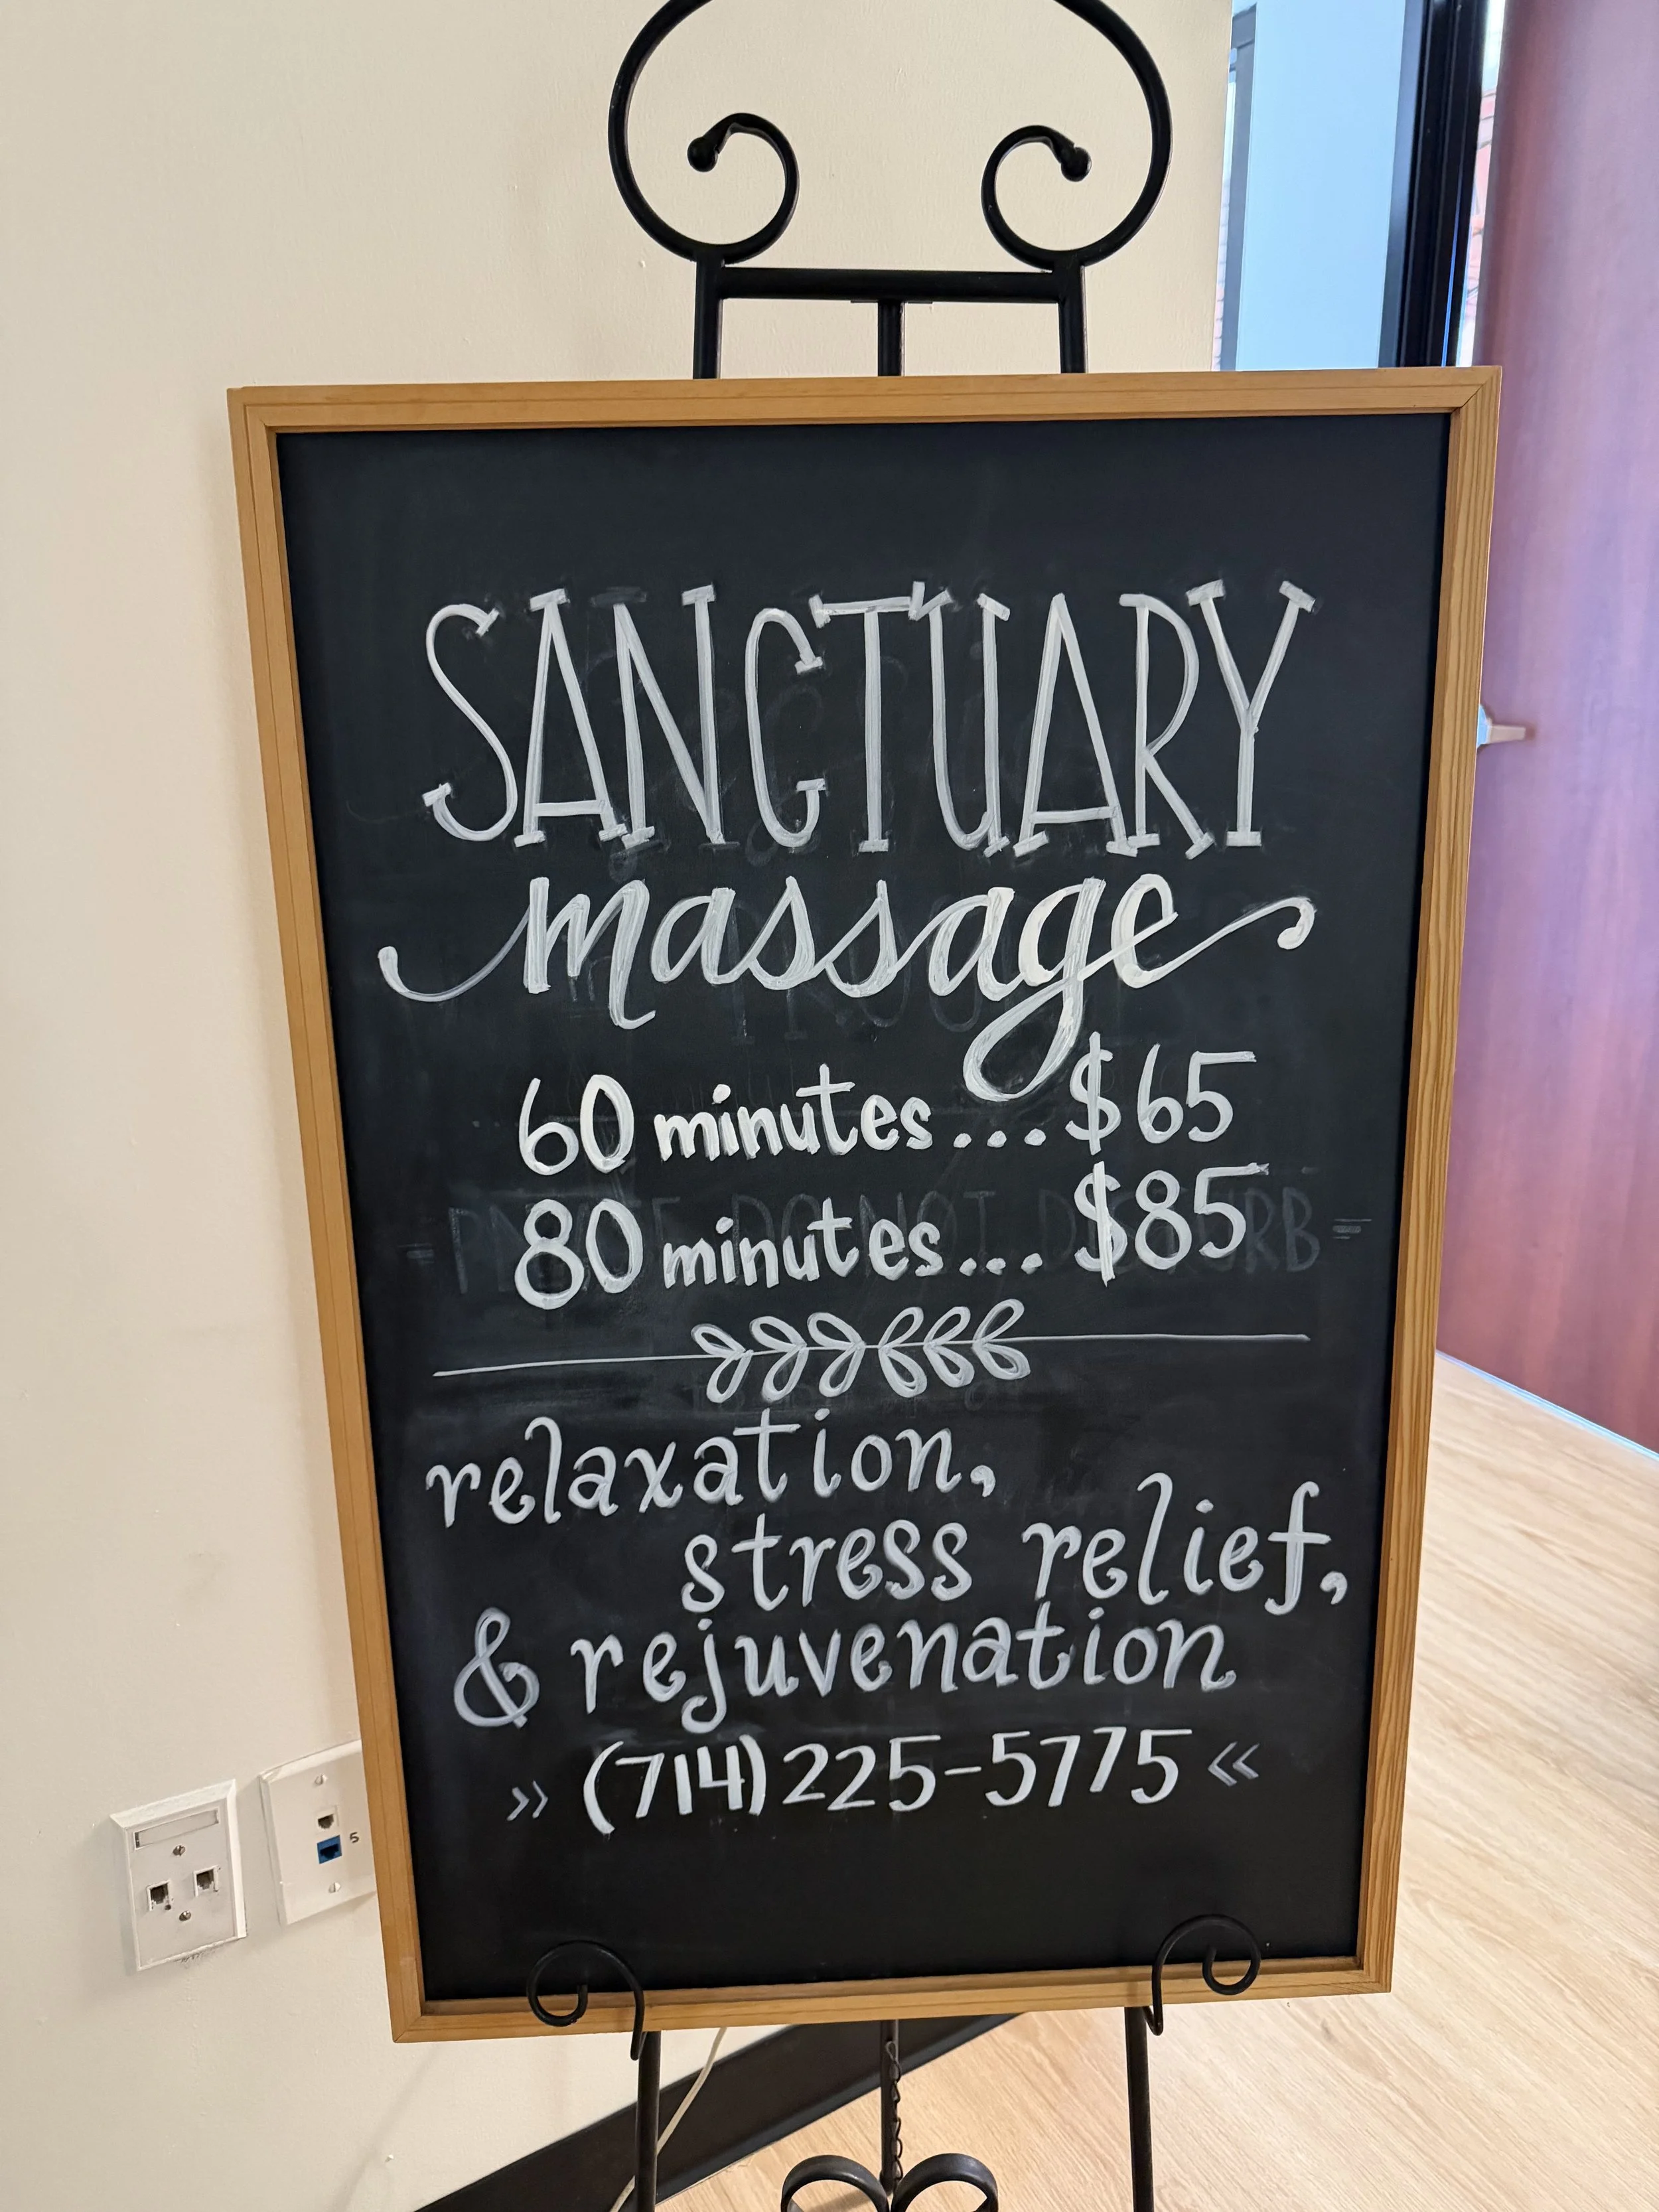 SANCTUARY
massage
60 minutes...$65
80 minutes...$85
PLEASE DO NOT DISTURB
relaxation,
stress relief,
& rejuvenation
›› (714) 225-5775 ‹‹
5